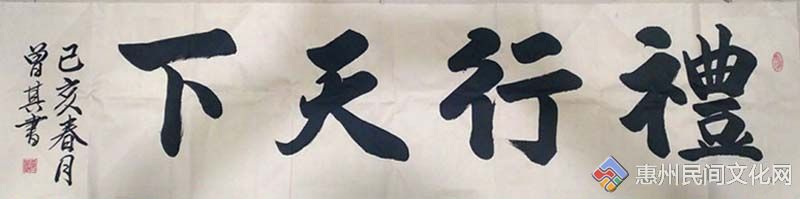 禮行天下
己亥春月
曾其書
惠州民间文化网